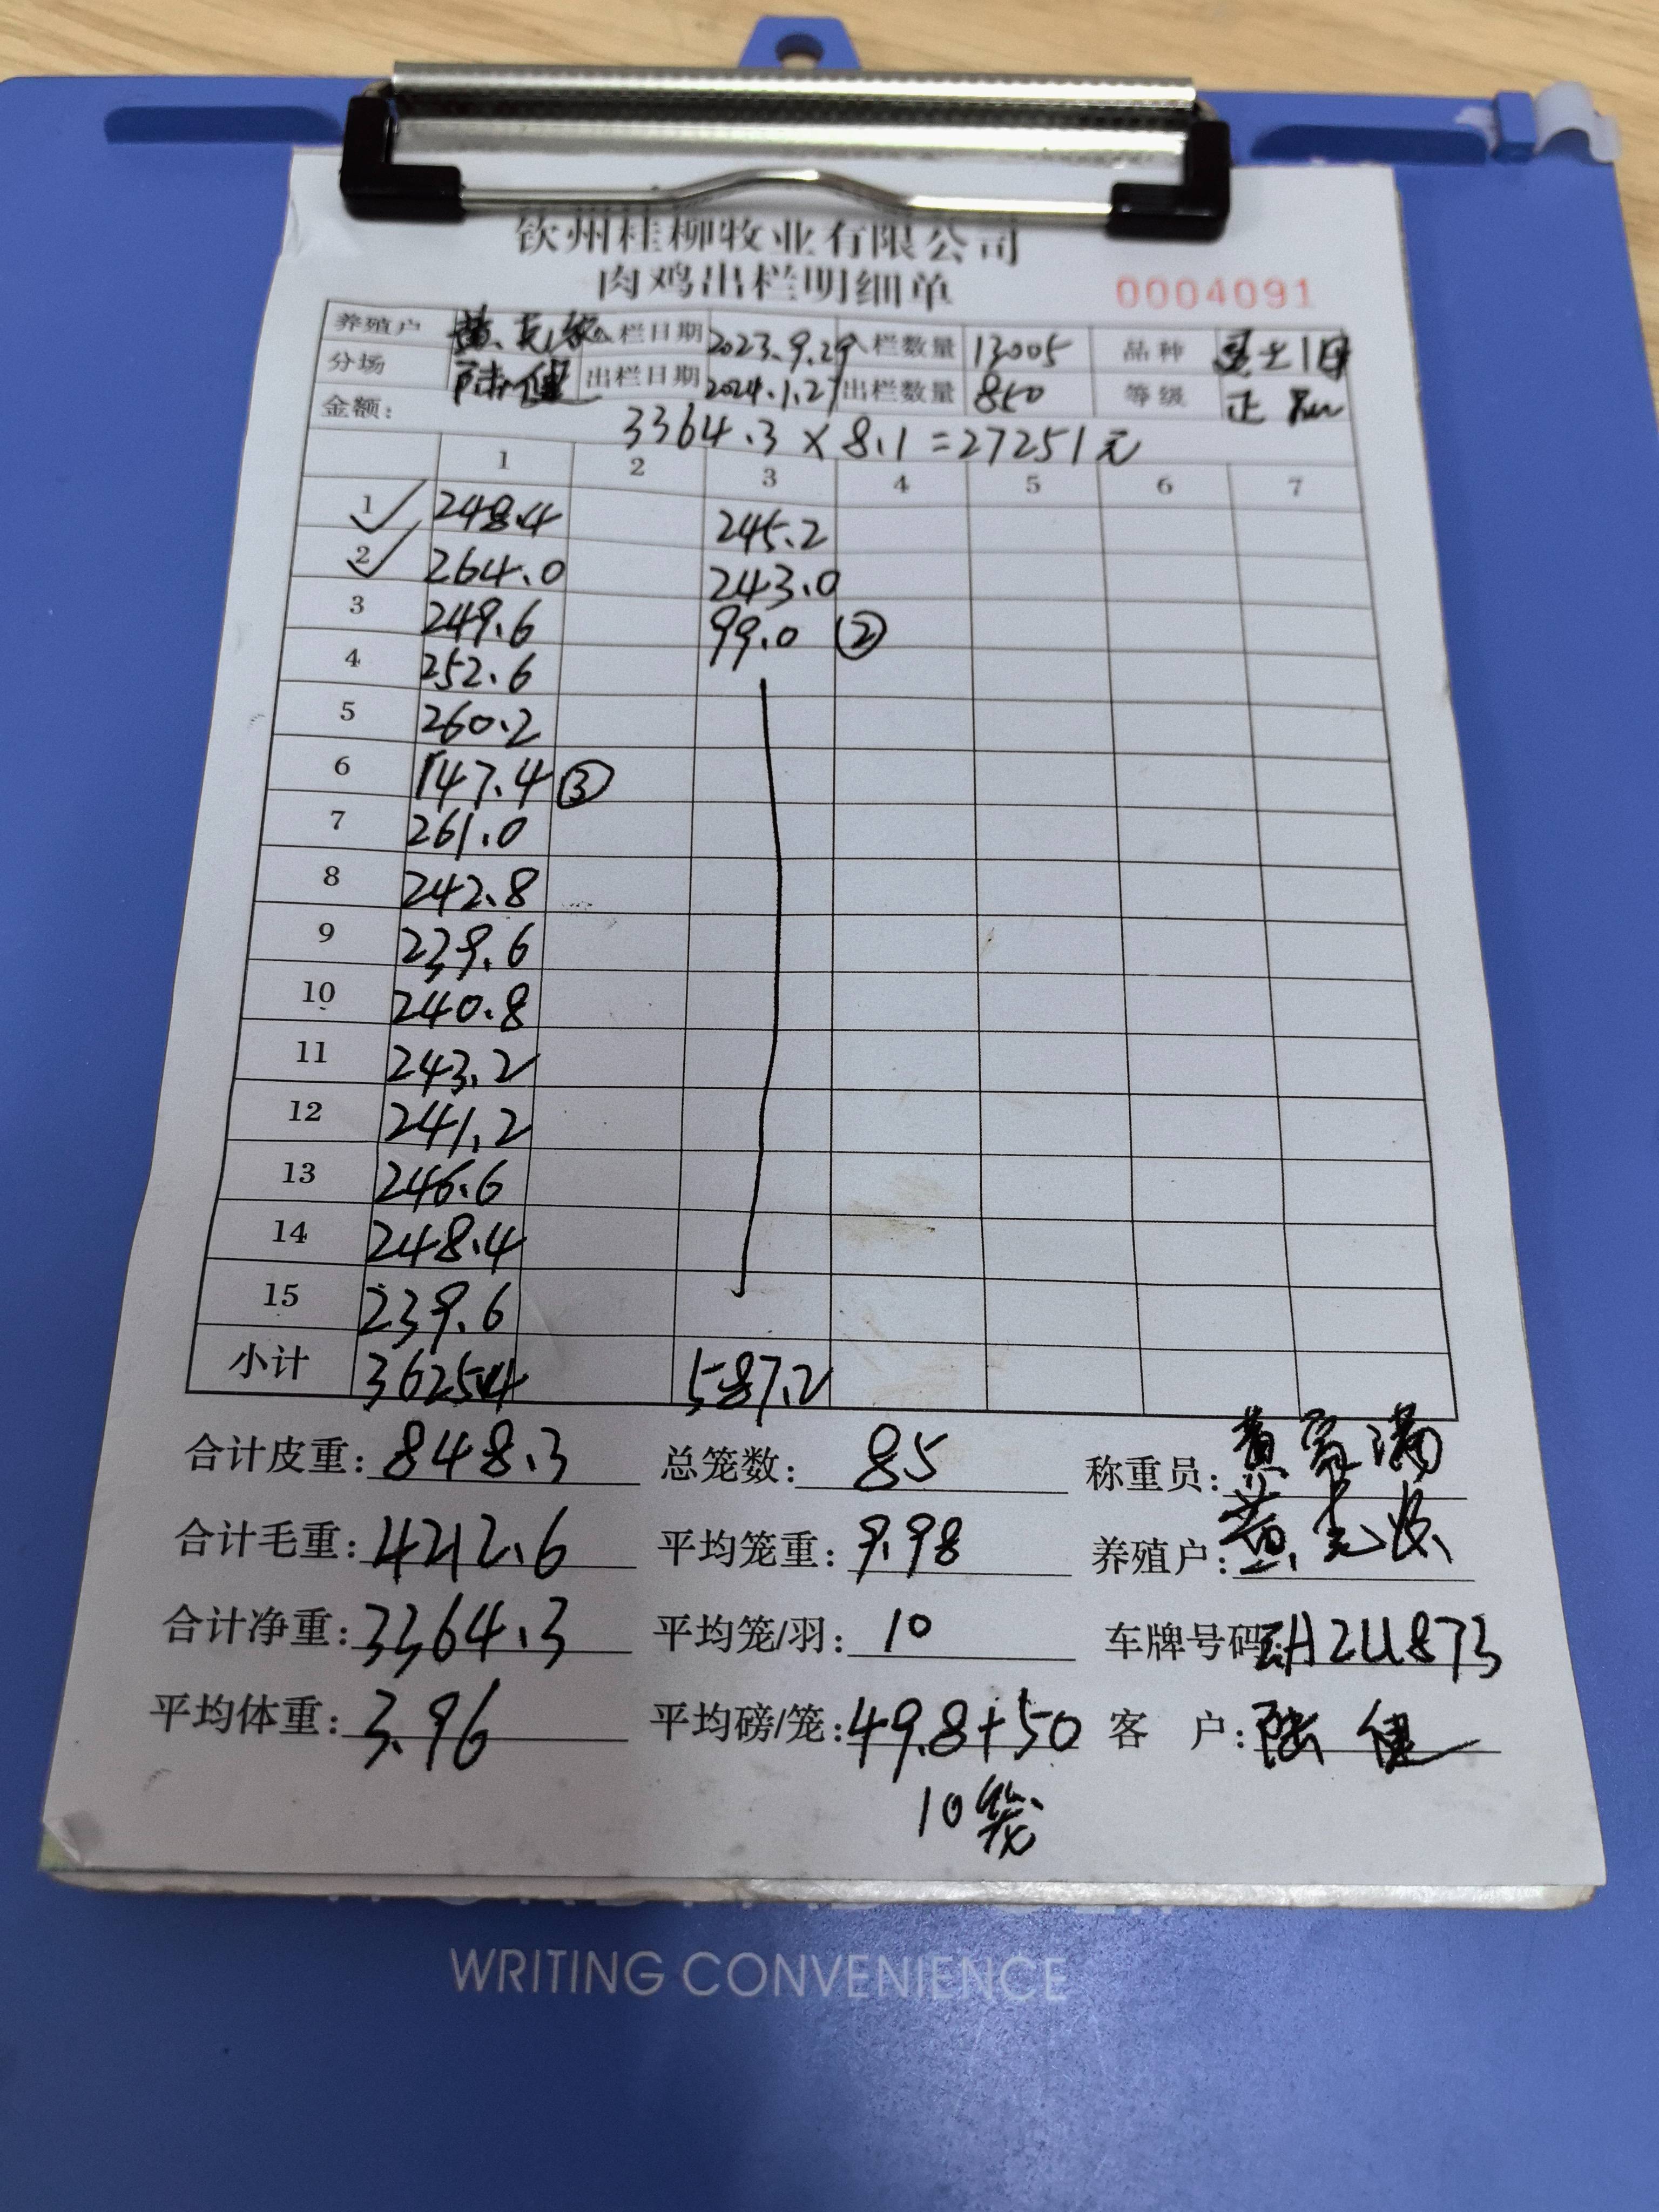 钦州桂柳牧业有限公司
肉鸡出栏明细单
0004091
养殖户 入栏日期 2023.9.29 入栏数量 13005 品种
分场 陆健 出栏日期 2024.1.27 出栏数量 850 等级 正
金额: 3364.3 × 8.1 = 27251元
1 2 3 4 5 6 7
1 248.4 245.2
2 264.0 243.0
3 249.6 99.0 ②
4 252.6
5 260.2
6 147.4 ③
7 261.0
8 242.8
9 239.6
10 240.8
11 243.2
12 241.2
13 246.6
14 248.4
15 239.6
小计 3625.4 587.2
合计皮重: 848.3 总笼数: 85 称重员: 黄富满
合计毛重: 4212.6 平均笼重: 9.98 养殖户: 黄
合计净重: 3364.3 平均笼/羽: 10 车牌号码: A2U873
平均体重: 3.96 平均磅/笼: 49.8+50 客 户: 陆健
10笼
WRITING CONVENIENCE